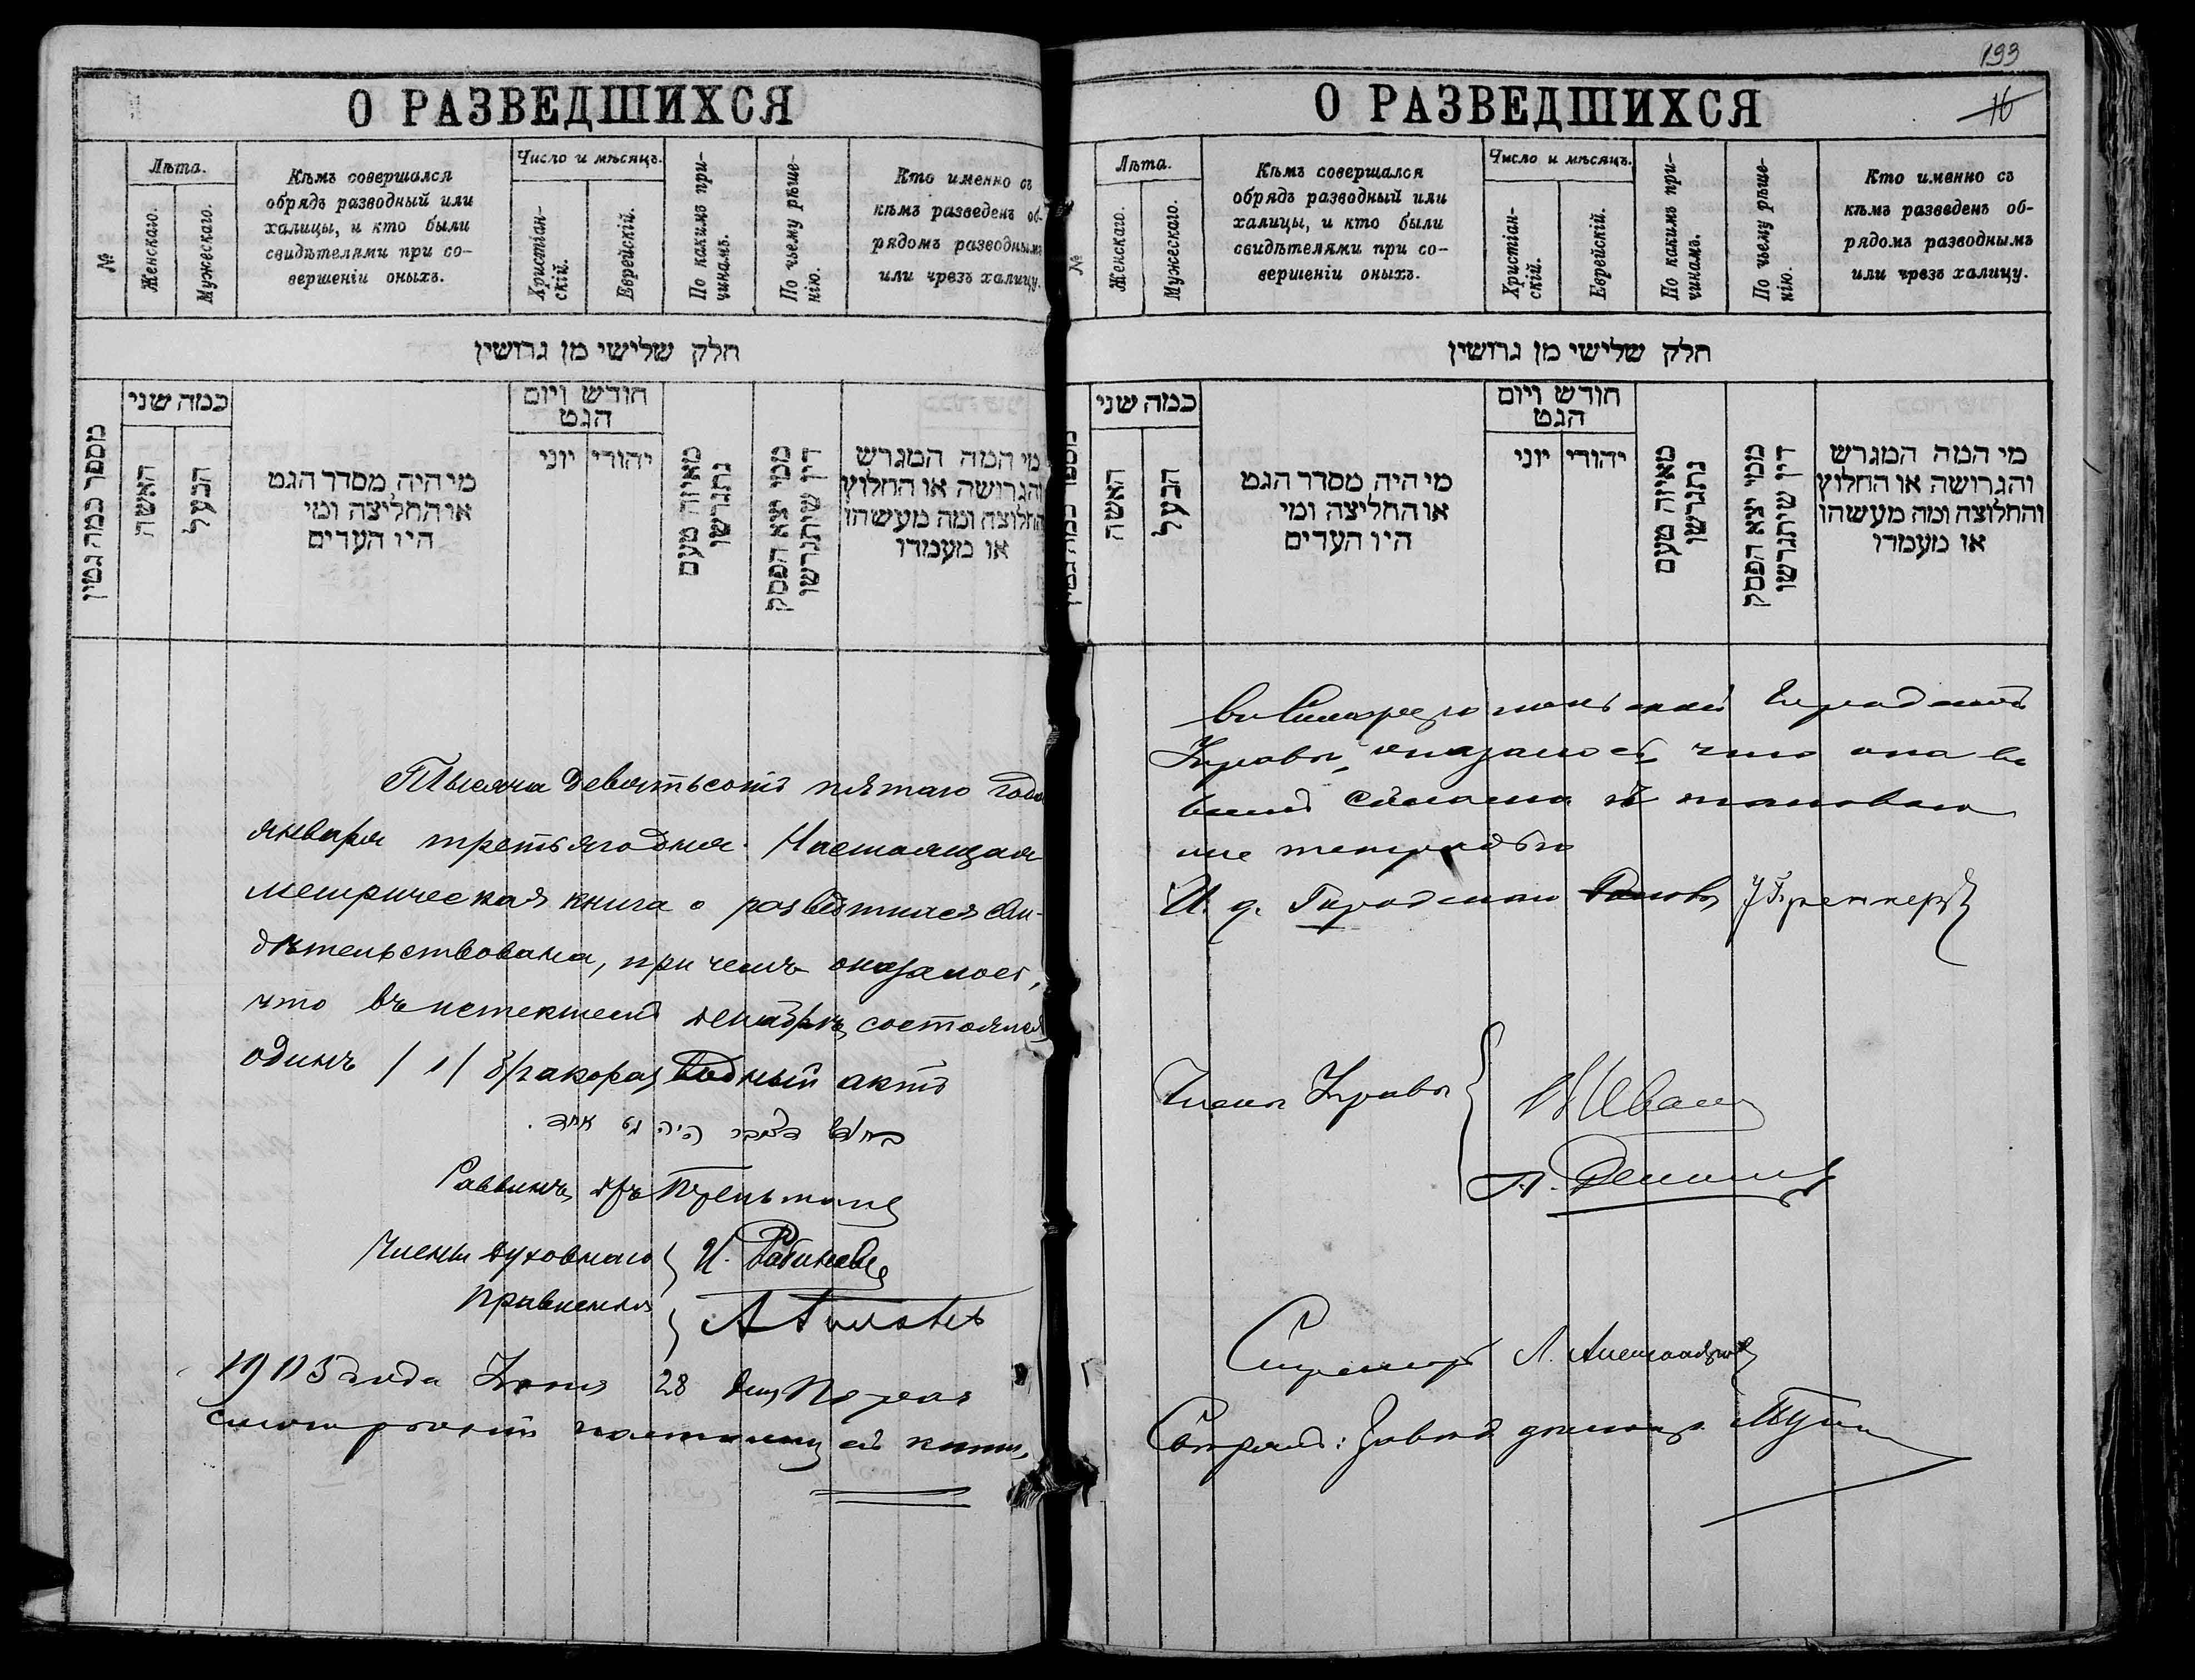 О РАЗВЕДШИХСЯ
№
Лѣта.
Женскаго.
Мужескаго.
Кѣмъ совершался
обрядъ разводный или
халицы, и кто были
свидѣтелями при со-
вершеніи оныхъ.
Число и мѣсяцъ.
Христіан-
скій.
Еврейскій.
По какимъ при-
чинамъ.
По чьему рѣше-
нію.
Кто именно съ
кѣмъ разведенъ об-
рядомъ разводнымъ
или чрезъ халицу.
חלק שלישי מן גרושין
מספר כמה גטין
כמה שני
האשה
הבעל
מי היה מסדר הגט
או החליצה ומי
היו העדים
חודש ויום
הגט
יוני
יהודי
מאיזה טעם
נתגרשו
ממי יצא הפסק
דין שיתגרשו
מי המה המגרש
והגרושה או החלוץ
והחלוצה ומה מעשהו
או מעמדו
Тысяча девятьсотъ пятаго года
января третьягодня. Настоящая
метрическая книга о разведшихся сви-
дѣтельствована, при чемъ оказалось,
что въ истекшемъ декабрѣ состоялся
одинъ /1/ бракоразводный актъ
בחודש דצמבר היה גט אחד.
Раввинъ д-ръ
Члены Духовнаго
Правленія
И. Рабиновичъ
1905 года Юня 28 дня По раз
смотрѣніи настоящей книги,
193
О РАЗВЕДШИХСЯ
16
№
Лѣта.
Женскаго.
Мужескаго.
Кѣмъ совершался
обрядъ разводный или
халицы, и кто были
свидѣтелями при со-
вершеніи оныхъ.
Число и мѣсяцъ.
Христіан-
скій.
Еврейскій.
По какимъ при-
чинамъ.
По чьему рѣше-
нію.
Кто именно съ
кѣмъ разведенъ об-
рядомъ разводнымъ
или чрезъ халицу.
חלק שלישי מן גרושין
כמה שני
האשה
הבעל
מי היה מסדר הגט
או החליצה ומי
היו העדים
חודש ויום
הגט
יוני
יהודי
מאיזה טעם
נתגרשו
ממי יצא הפסק
דין שיתגרשו
מי המה המגרש
והגרושה או החלוץ
והחלוצה ומה מעשהו
או מעמדו
Городской
Управы, оказалось, что она
И. д. Городского
Члены Управы
Секретарь